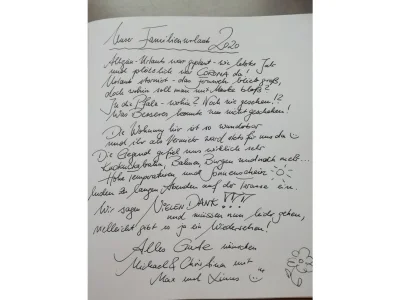 Unser Familienurlaub 2020
Allgäu-Urlaub war geplant - wie letztes Jahr
und plötzlich war CORONA da!
Urlaub storniert - das Fernweh blieb groß,
doch wohin soll man mit Maske bloß?
In die Pfalz - wohin? Noch nie gesehen!?
Was Besseres konnte uns nicht geschehen!
Die Wohnung hier ist so wunderbar
und ihr als Vermieter ward stets für uns da
Die Gegend gefiel uns wirklich sehr
Kuckucksbähnel, Burgen und noch mehr...
Hohe Temperaturen und Sonnenschein
luden zu langen Abenden auf der Terrasse ein.
Wir sagen VIELEN DANK!!!
und müssen nun leider gehen,
vielleicht gibt es ja ein Wiedersehen!
Alles Gute wünschen
Michael & Christina mit
Max und Linus